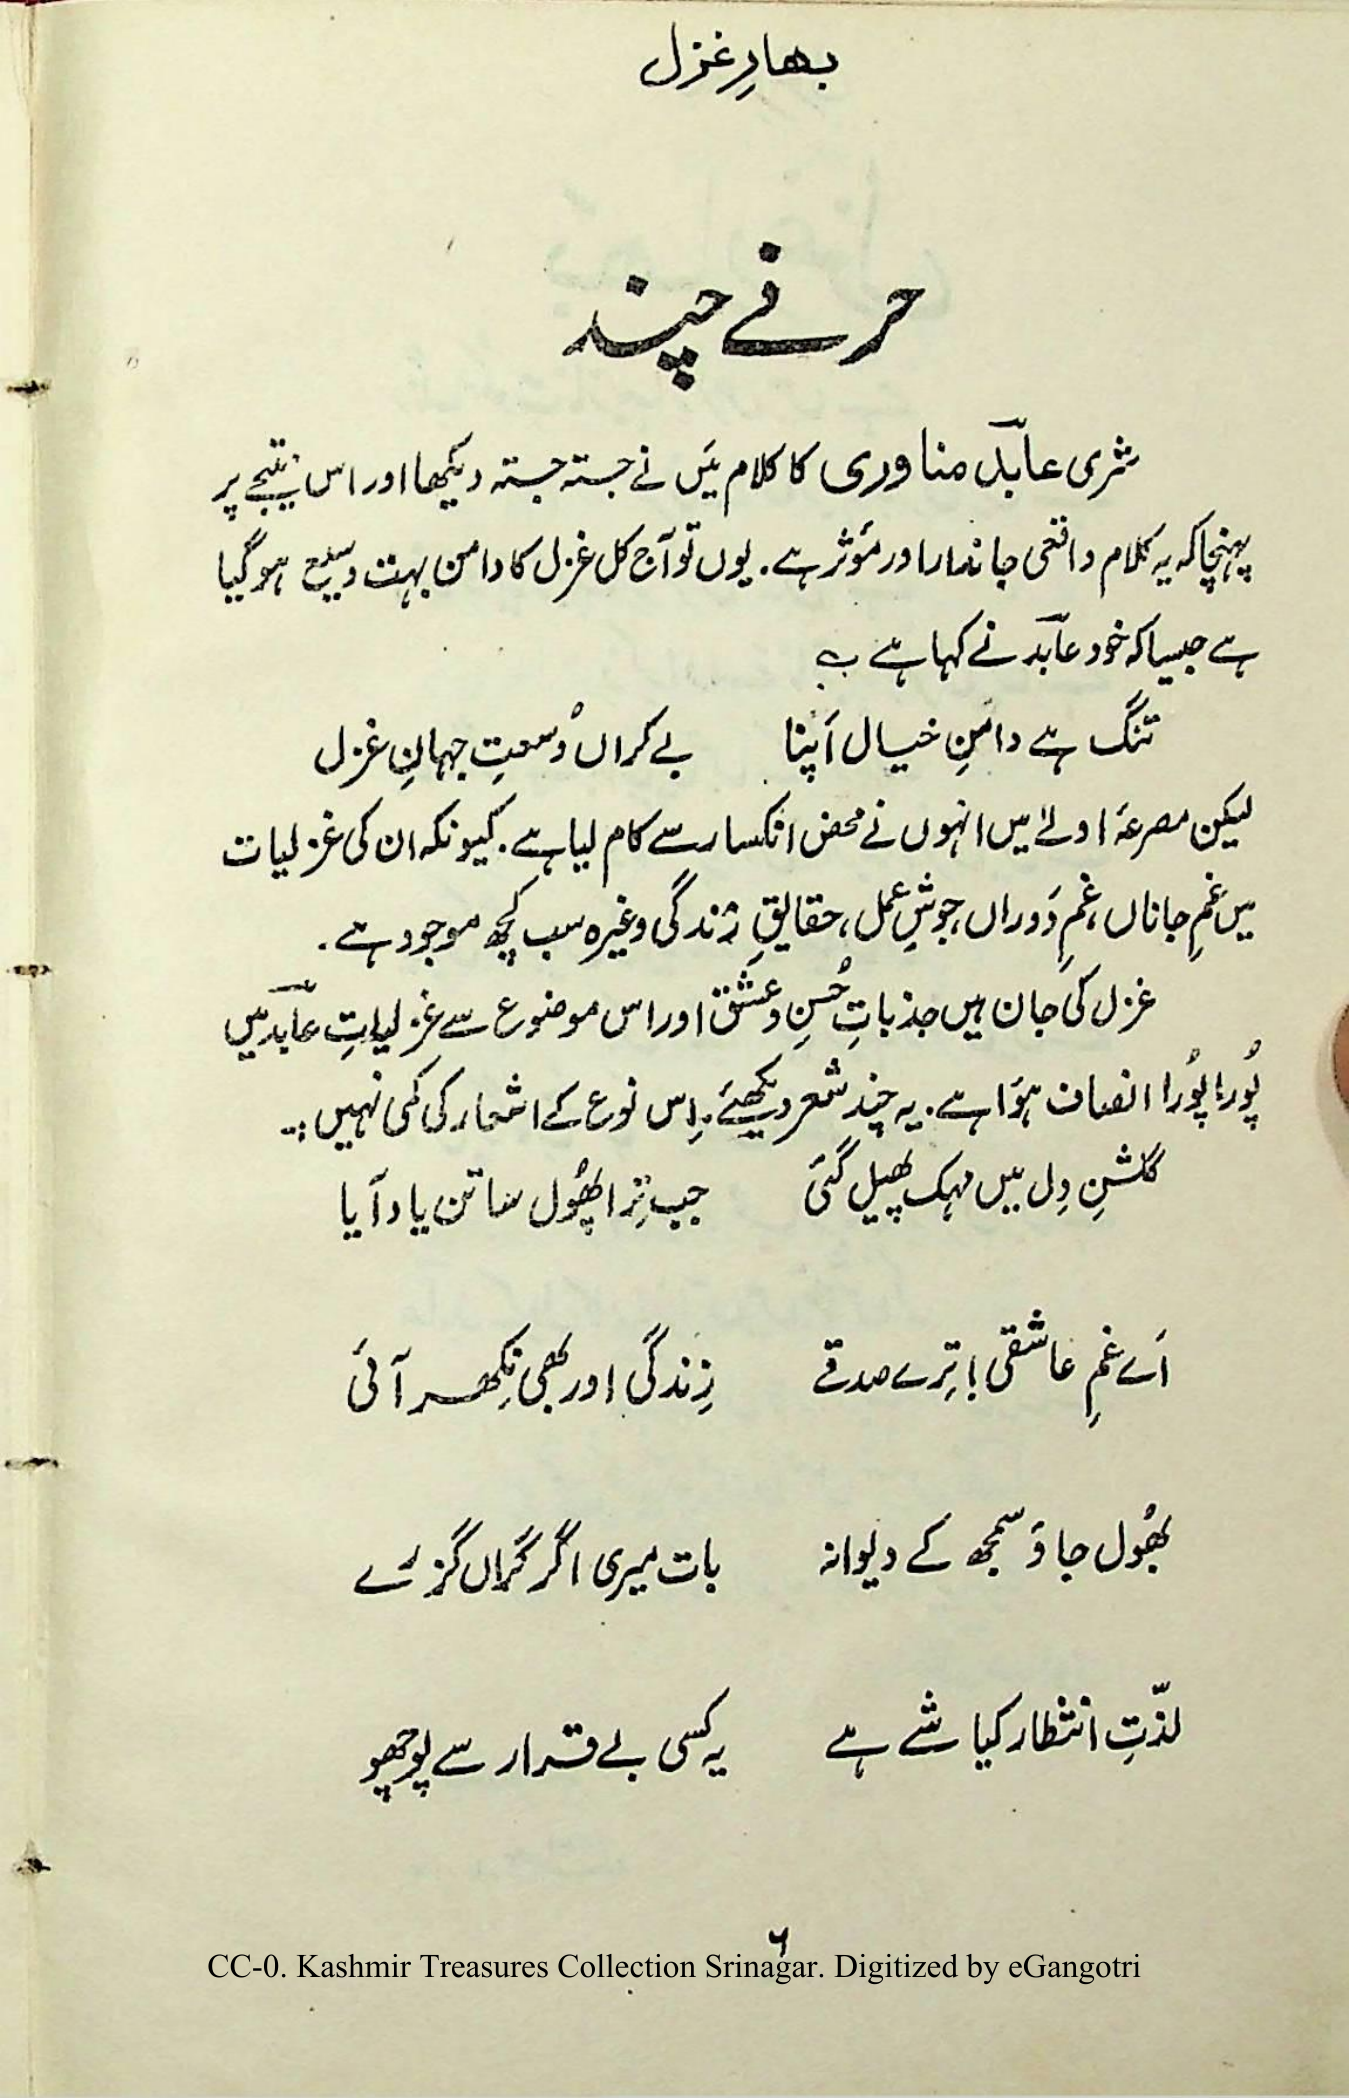 بہارِ غزل
حرفے چند
شری عابدؔ مناوری کا کلام میَں نے جستہ جستہ دیکھا اور اس نتیجے پر
پہنچا کہ یہ کلام واقعی جاندار اور مؤثر ہے۔ یوں تو آج کل غزل کا دامن بہت وسیع ہو گیا
ہے جیسا کہ خود عابدؔ نے کہا ہے ؎
تنگ ہے دامنِ خیال اَپنا بے کراں وُسعتِ جہانِ غزل
لیکن مصرعۂ اولےٰ میں انہوں نے محض انکسار سے کام لیا ہے۔ کیونکہ ان کی غزلیات
میں غمِ جاناں، غمِ دَوراں، جوشِ عمل، حقایقِ زندگی وغیرہ سب کچھ موجود ہے۔
غزل کی جان ہیں جذباتِ حُسن و عشق اور اس موضوع سے غزلیاتِ عابدؔ میں
پُورا پُورا انصاف ہوَا ہے۔ یہ چند شعر دیکھئے۔ اِس نوع کے اشعار کی کمی نہیں :۔
گلشنِ دِل میں مہک پھیل گئی جب تِرا پھُول سا تن یاد آیا
اَے غمِ عاشقی! تِرے صدقے زِندگی اور بھی نِکھر آئی
بھُول جاؤ سمجھ کے دیوانہ بات میری اگر گراں گزرے
لذّتِ انتظار کیا شے ہے یہ کسی بے قرار سے پوچھو
۶
CC-0. Kashmir Treasures Collection Srinagar. Digitized by eGangotri